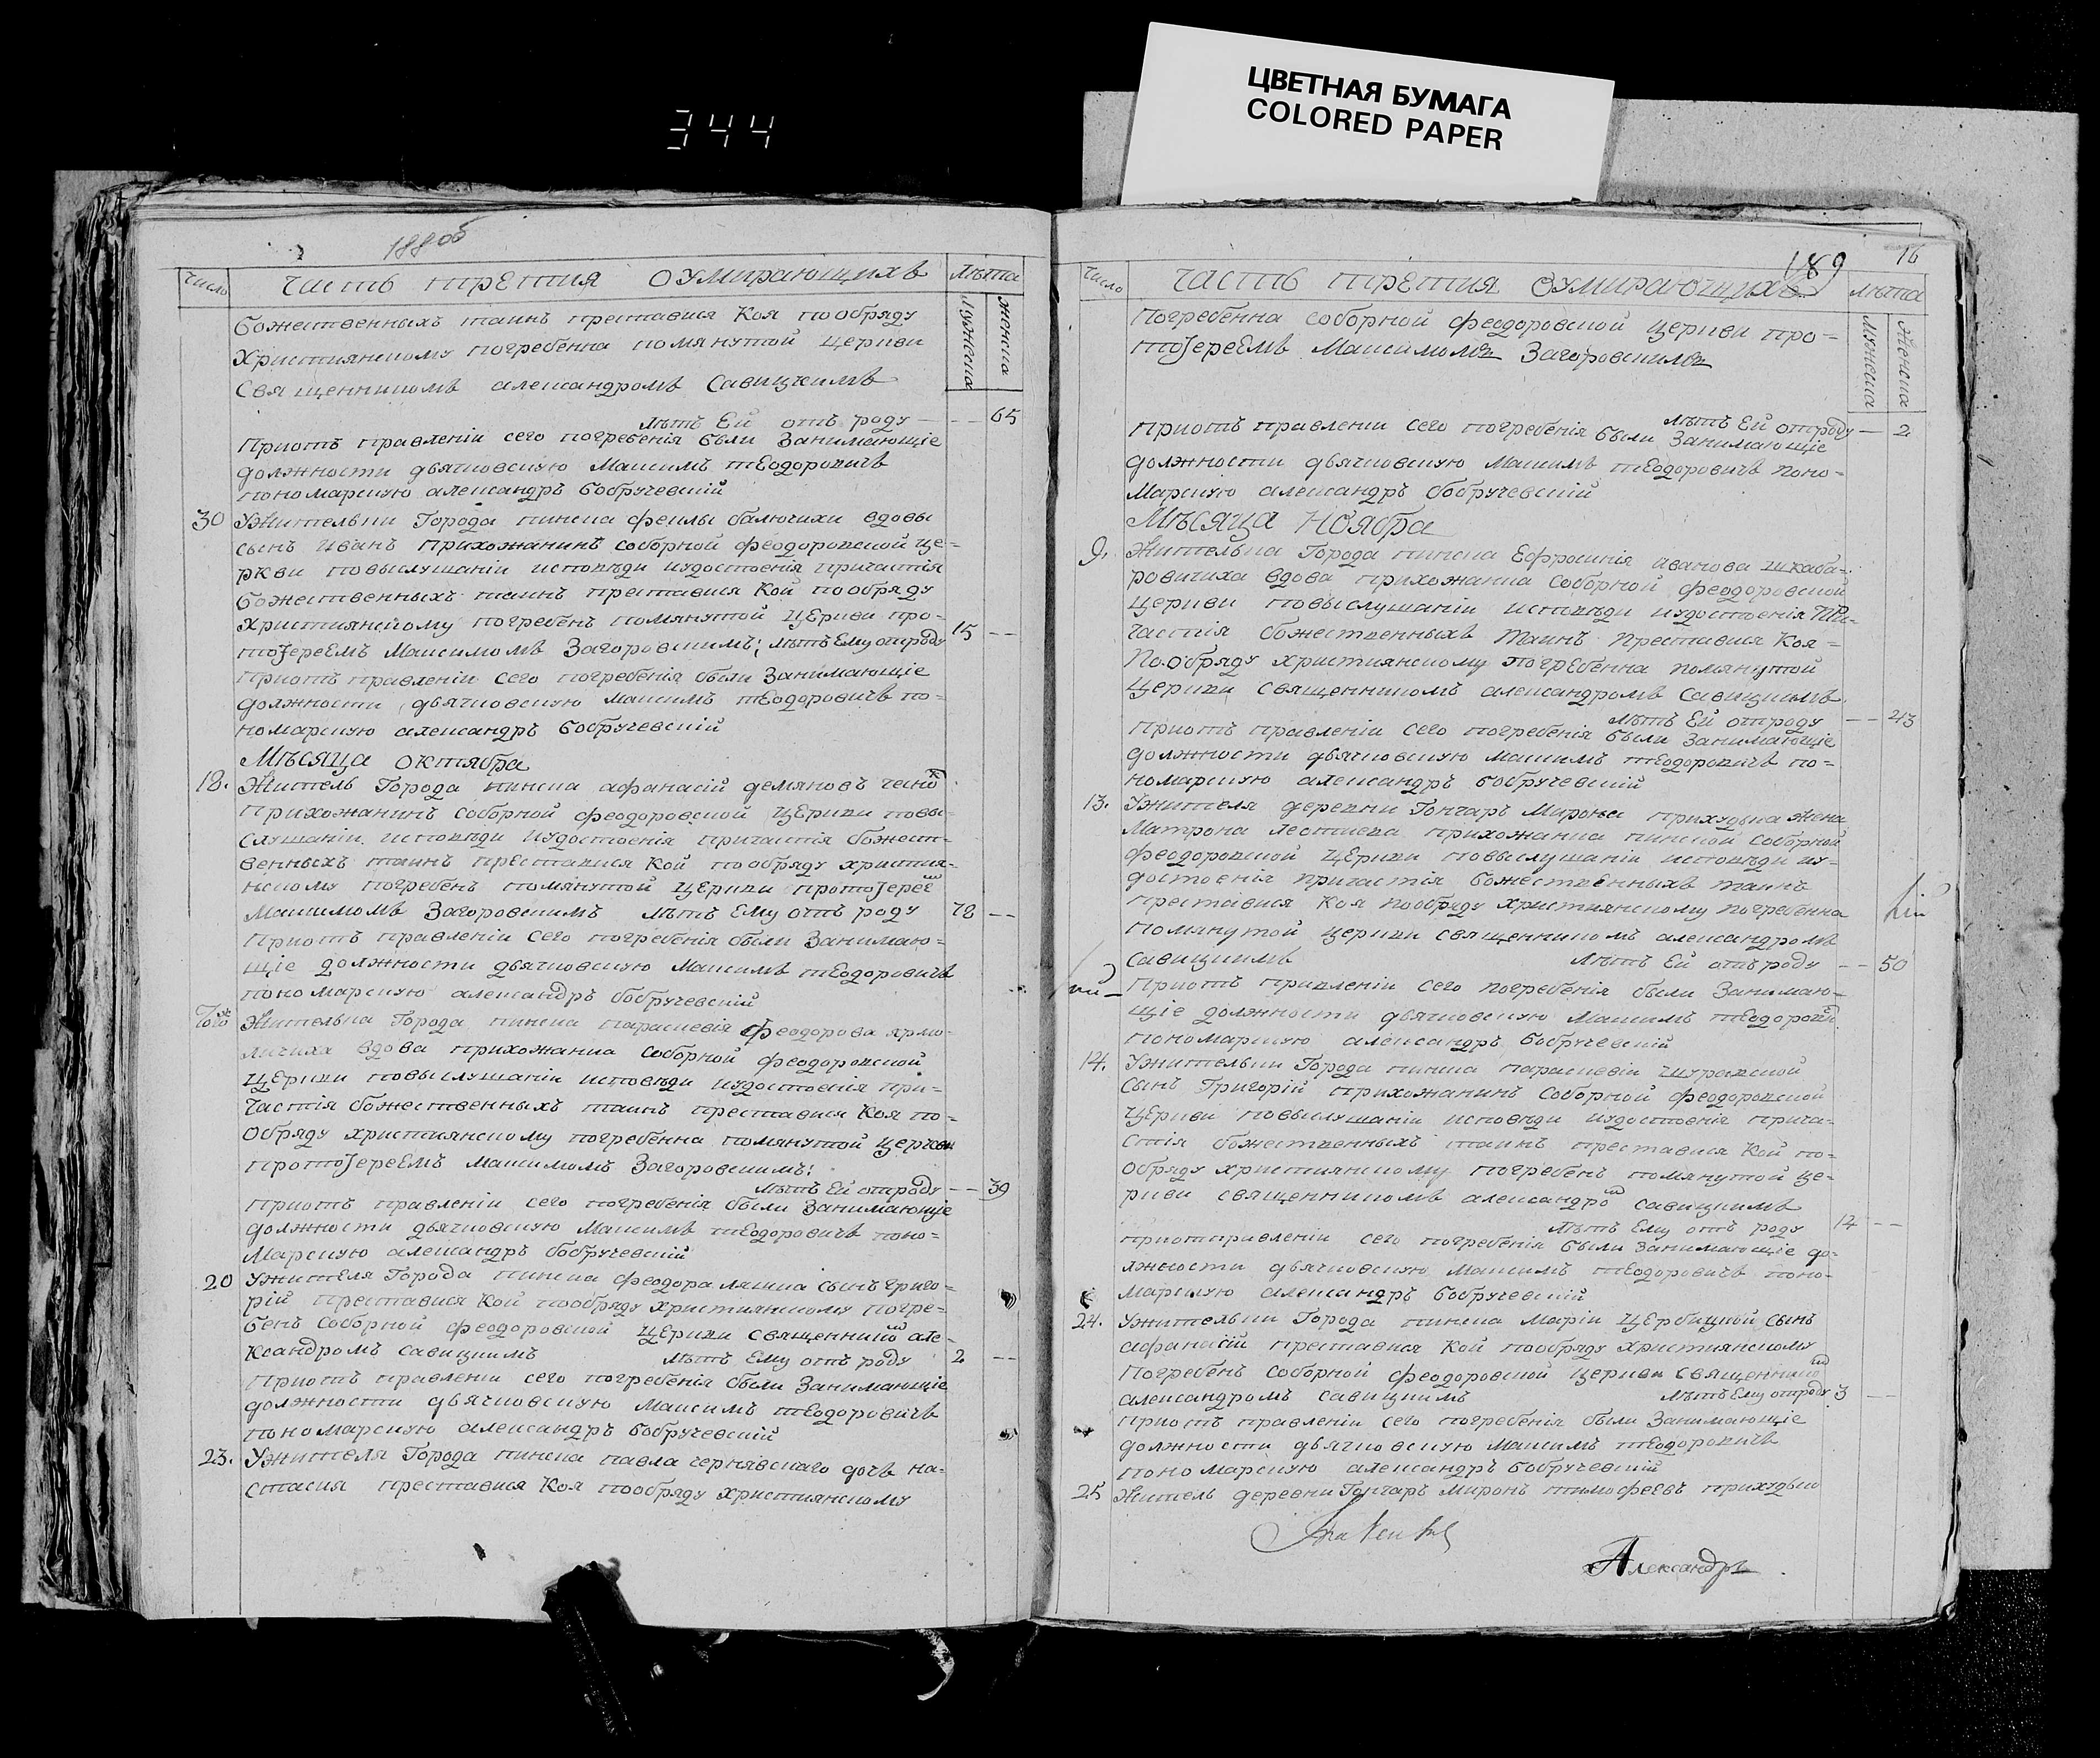 344
ЦВЕТНАЯ БУМАГА
COLORED PAPER
188 об
Число Часть третия оумирающихъ Лѣта
мужеска женска
божественныхъ таинъ преставися Коя пообряду
Християнскому погребенна помянутой церкви
Священникомъ александромъ Савицкимъ
лѣтъ Ей отъ роду — 65
Приотъ правленіи сего погребенія были Занимающіе
должности дьячковскую Максимъ тЕодоровичъ
пономарскую александръ бобручевскій
30 Ужительки Города пинска феклы балючихи вдовы
сынъ Иванъ прихожанинъ соборной феодоровской це=
ркви повыслушаніи исповѣди иудостоенія причастія
божественныхъ таинъ преставися Кой пообряду
християнскому погребенъ помянутой церкви про-
тоІереемъ Максимомъ Загоровскимъ; лѣтъ Ему отроду 15 --
Приотъ правленіи сего погребенія были Занимающіе
должности дьячковскую Максимъ тЕодоровичъ по=
номарскую александръ бобручевскій
Мѣсяца октября
18. Житель Города пинска афанасій демяновъ
прихожанинъ соборной феодоровской церкви повы-
слушаніи исповѣди иудостоенія причастія божест-
венныхъ таинъ преставися Кой пообряду християн-
нскому погребенъ помянутой церкви протоІерее
Максимомъ Загоровскимъ лѣтъ Ему отъ роду 78 --
Приотъ правленіи сего погребенія были Занимаю=
щіе должности дьячковскую Максимъ тЕодоровичъ
пономарскую александръ бобручевскій
Жителька Города пинска параскевія феодорова ярмо-
личиха вдова прихожанка соборной феодоровской
церкви повыслушаніи исповѣди иудостоенія при=
частія божественныхъ таинъ преставися Коя по=
обряду християнскому погребенна помянутой церкви
протоІереемъ Максимомъ Загоровскимъ;
лѣтъ Ей отроду -- 39
Приотъ правленіи сего погребенія были Занимающіе
должности дьячковскую Максимъ тЕодоровичъ поно=
Марскую александръ бобручевскій
20 Ужителя Города пинска феодора сынъ григо=
рій преставися Кой пообряду християнскому погре=
бенъ Соборной феодоровской церкви священнико але-
ксандромъ савицкимъ лѣтъ Ему отъ роду 2 --
Приотъ правленіи сего погребенія были Занимающіе
должности дьячковскую Максимъ тЕодоровичъ
пономарскую александръ бобручевскій
23. Ужителя Города пинска павла чернявскаго дочь на=
стасия преставися Коя пообряду християнскому
189
16
Число Часть третия оумирающихъ лѣта
Мужеска Женска
Погребенна соборной феодоровской церкви про=
тоІереемъ Максимомъ Загоровскимъ
лѣтъ Ей отроду — 2
приотъ правленіи сего погребенія были Занимающіе
должности дьячковскую Максимъ тЕодоровичъ поно-
Марскую александръ бобручевскій
Мѣсяца Ноября
9. Жителька Города пинска Ефросинія иванова шкаба-
ровичиха вдова прихожанка соборной феодоровской
церкви повыслушаніи исповѣди иудостоенія При-
частія божественныхъ таинъ преставися Коя =
По обряду християнскому погребенна помянутой
церкви священникомъ александромъ савицкимъ
лѣтъ Ей отроду -- 43
приотъ правленіи сего погребенія были Занимающіе
должности дьячковскую Максимъ тЕодоровичъ по=
номарскую александръ бобручевскій
13. Ужителя деревни Гончаръ Мирона прихудька жена
Матрона прихожанка пинской соборной
феодоровской церкви повыслушаніи исповѣди иу-
достоенія причастія божественныхъ таинъ
преставися Коя пообряду християнскому погребенна
помянутой церкви священникомъ александромъ
савицкимъ лѣтъ Ей отъ роду -- 50
приотъ правленіи сего погребенія были Занимаю-
щіе должности дьячковскую Максимъ тЕодорович
пономарскую александръ бобручевскій
14. Ужительки Города пинска параскевіи
Сынъ Григорій прихожанинъ Соборной феодоровской
церкви повыслушаніи исповѣди иудостоенія прича-
стія божественныхъ таинъ преставися Кой по=
обряду християнскому погребенъ помянутой це=
ркви священникомъ александро савицкимъ
лѣтъ Ему отъ роду 14 --
приотправленіи сего погребенія были Занимающіе до=
лжности дьячковскую Максимъ тЕодоровичъ поно-
марскую александръ бобручевскій
24. Ужительки Города пинска Маріи щербицкой сынъ
афанасій преставися Кой пообряду християнскому
Погребенъ соборной феодоровской церкви священнико
александромъ савицкимъ лѣтъ Ему отроду 3 --
приотъ правленіи сего погребенія были Занимающіе
должности дьячковскую Максимъ тЕодоровичъ
пономарскую александръ бобручевскій
25 Житель деревни Гончаръ Миронъ тимофеевъ прихудько
Александръ